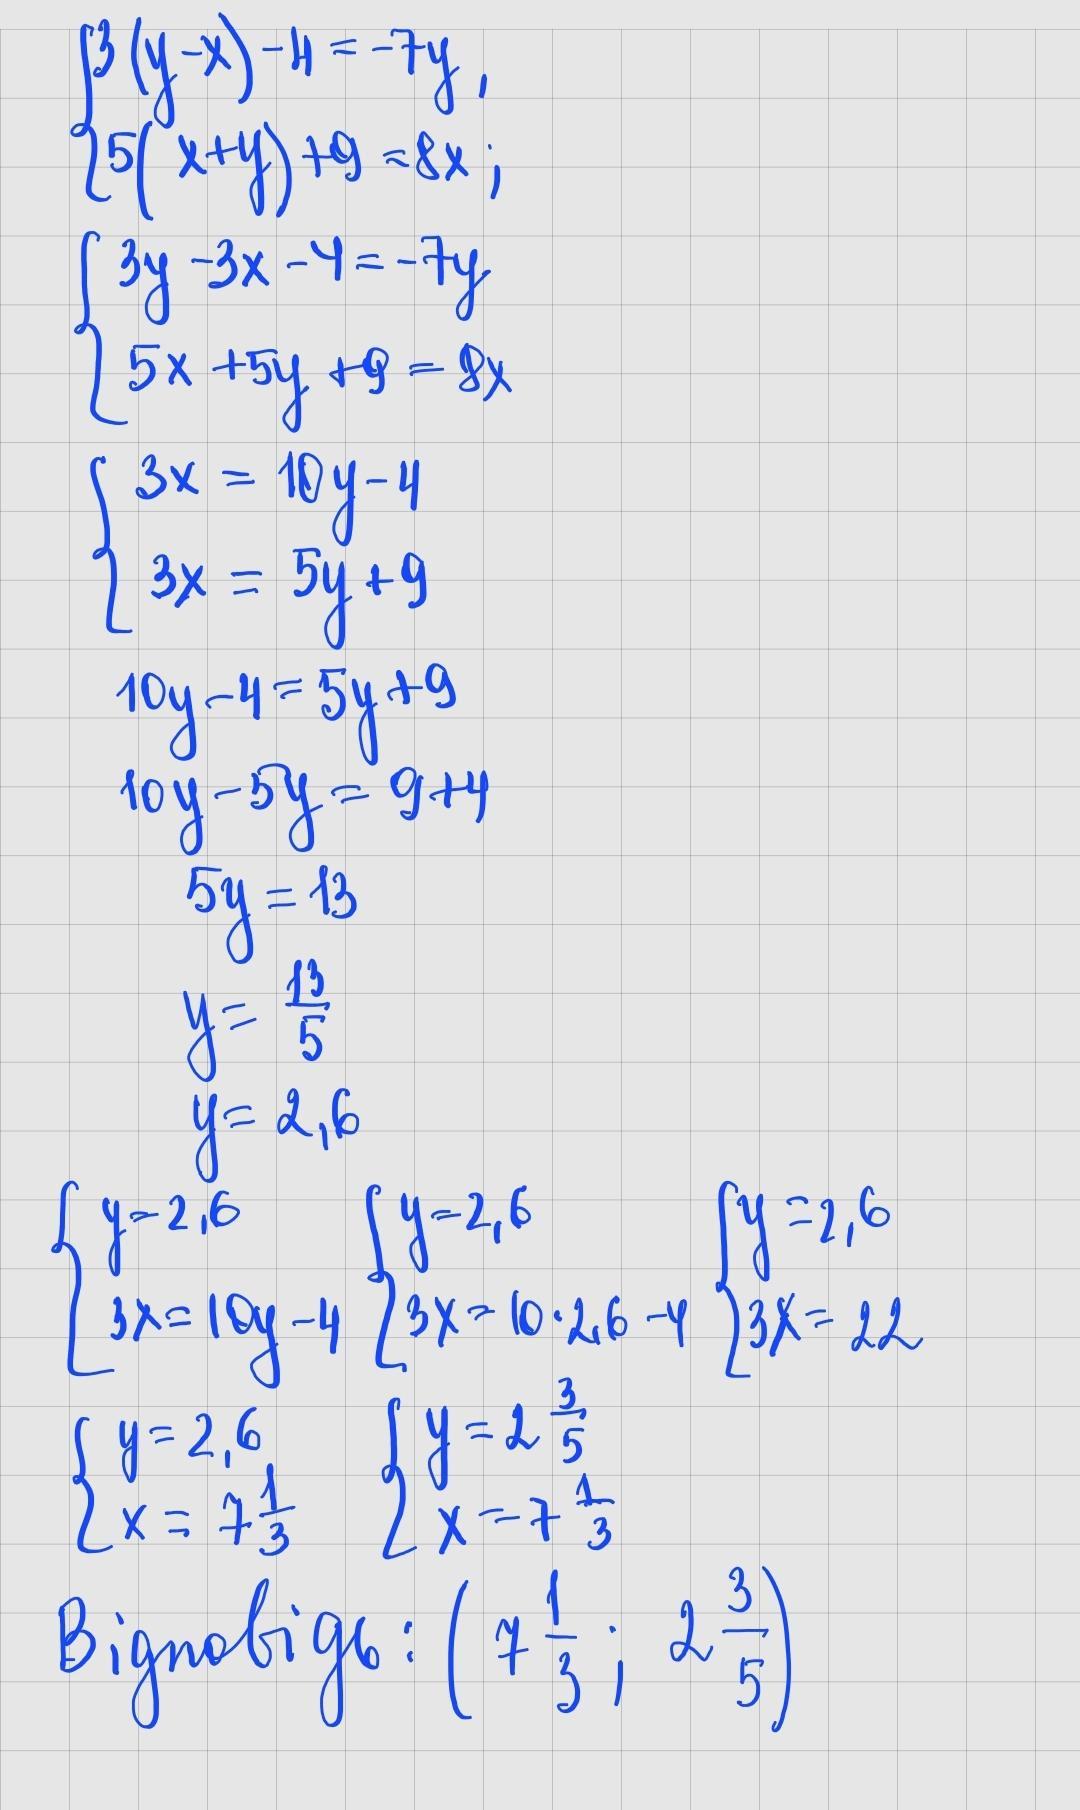 {3(y-x)-4=-7y,
{5(x+y)+9=8x;
{3y-3x-4=-7y
{5x+5y+9=8x
{3x=10y-4
{3x=5y+9
10y-4=5y+9
10y-5y=9+4
5y=13
y=13/5
y=2,6
{y=2,6 {y=2,6 {y=2,6
{3x=10y-4 {3x=10·2,6-4 {3x=22
{y=2,6 {y=2 3/5
{x=7 1/3 {x=7 1/3
Відповідь: (7 1/3; 2 3/5)